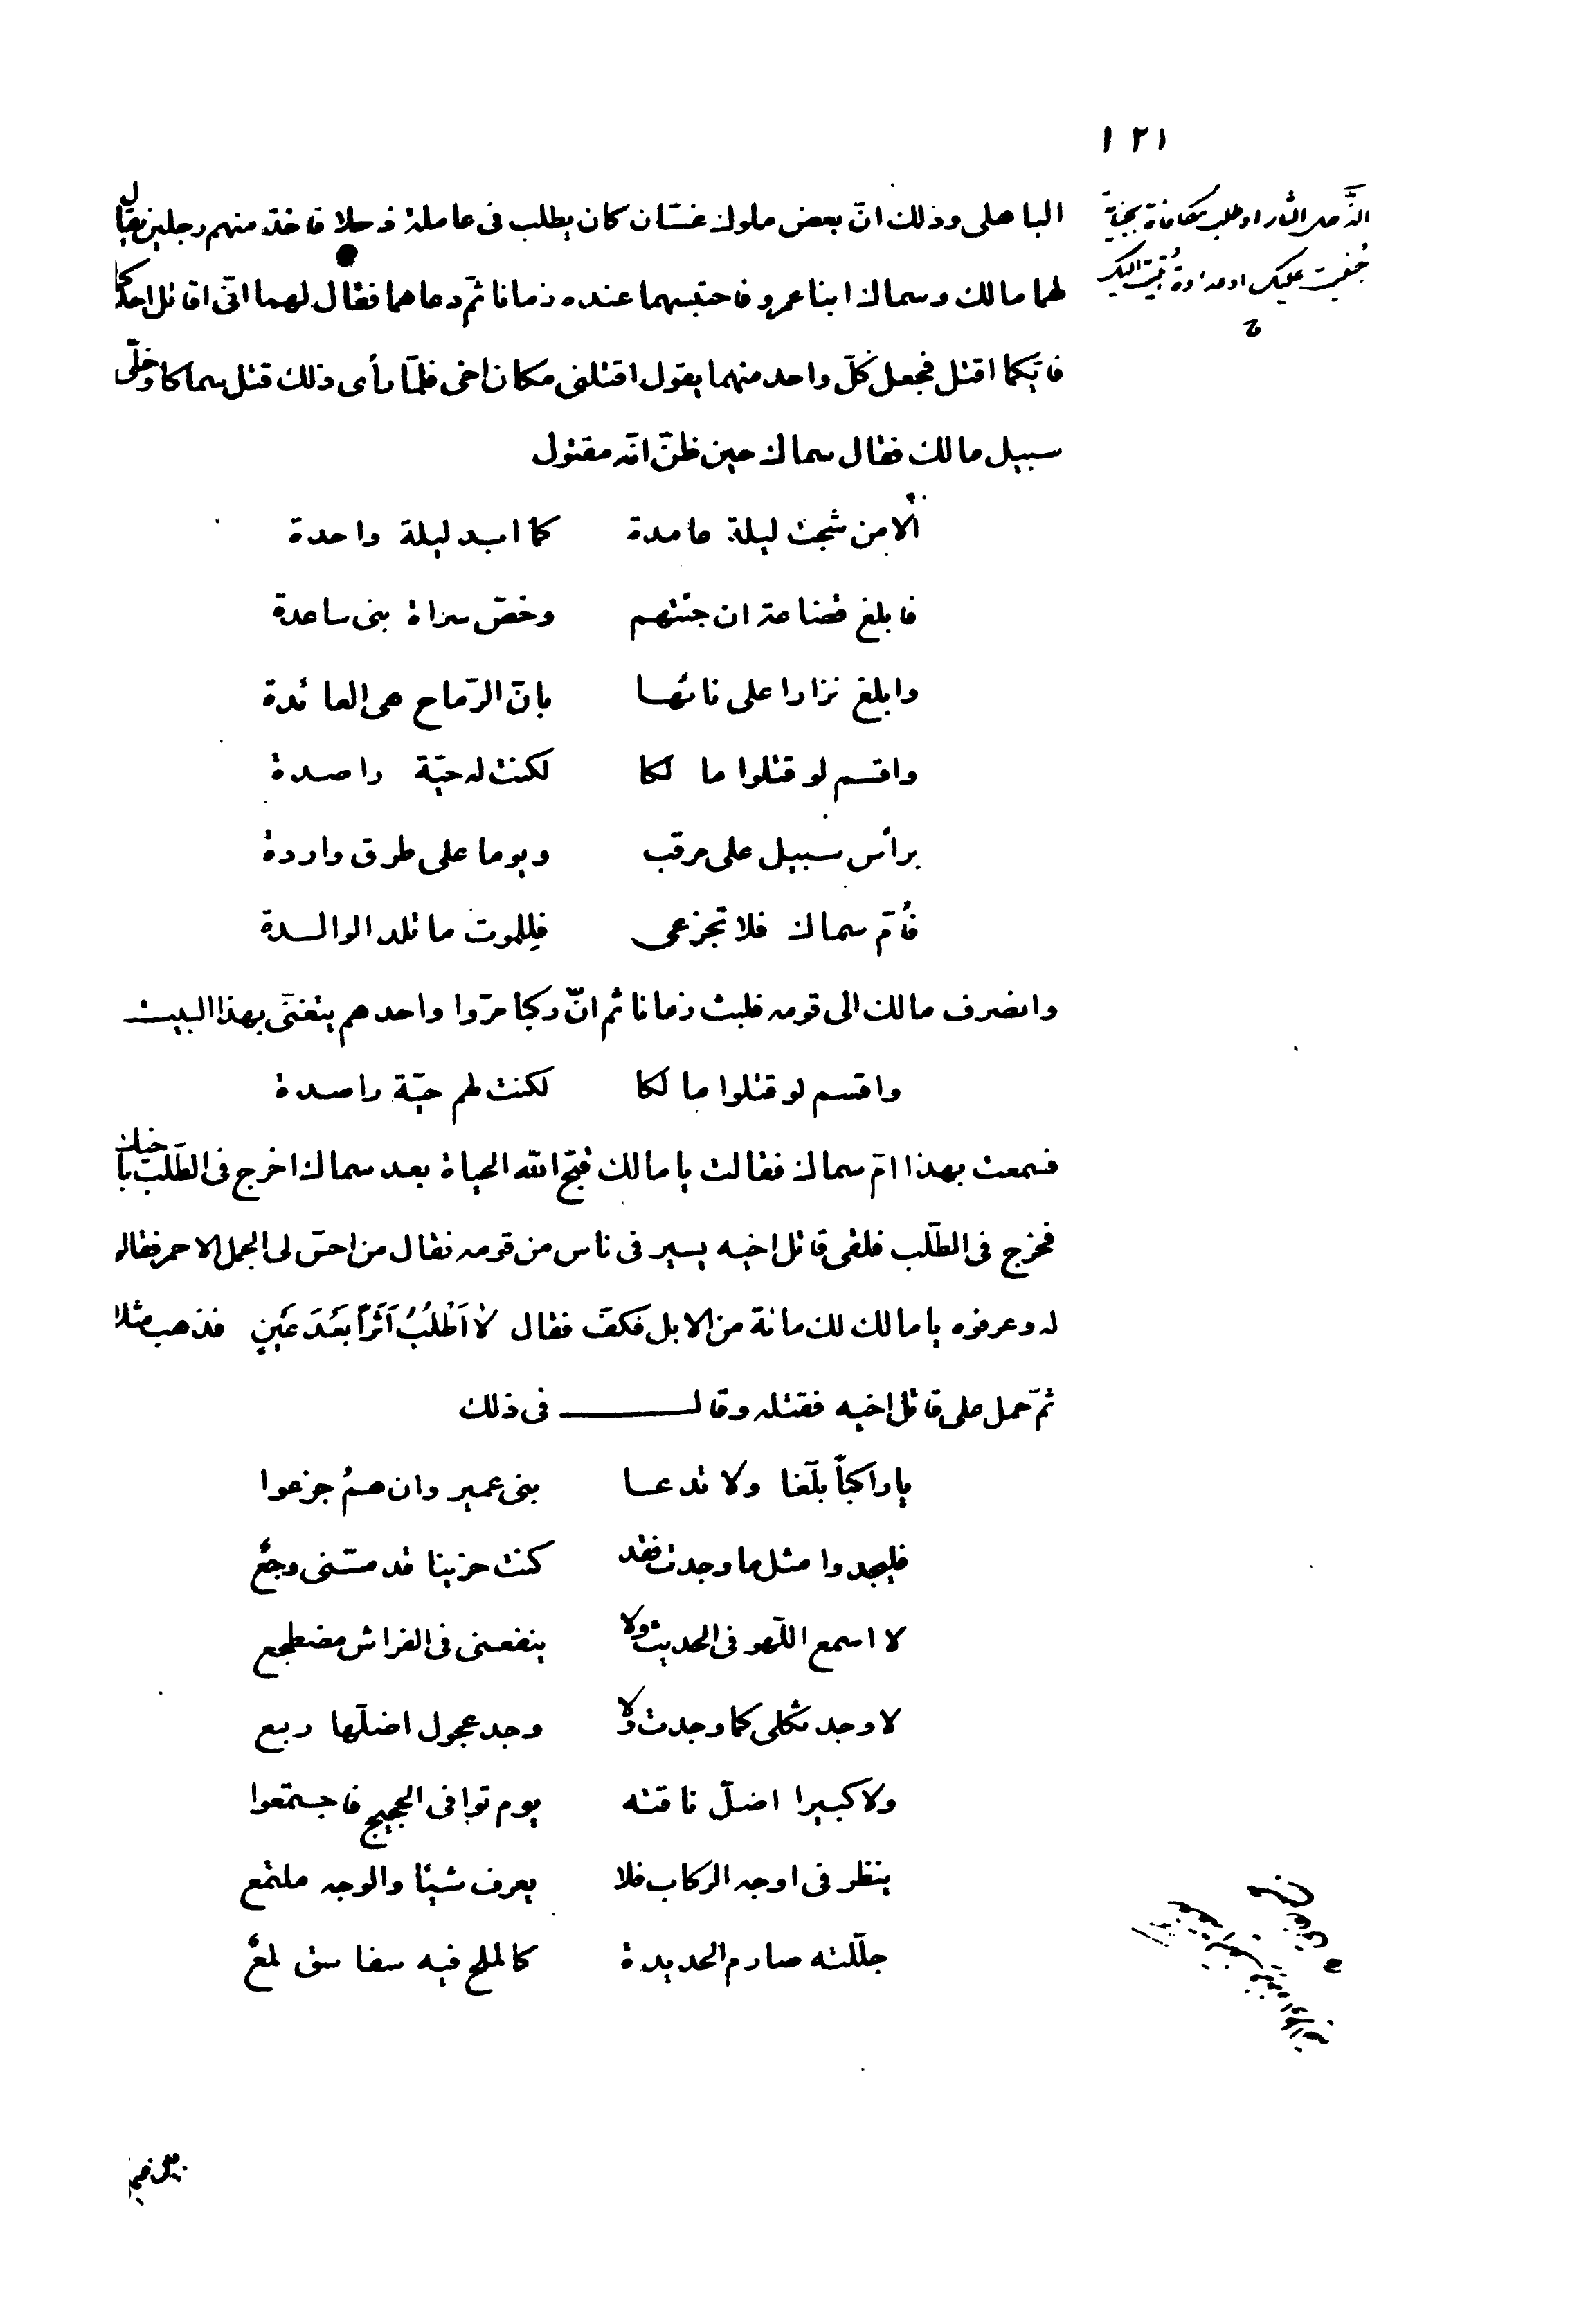 ١٢١
الذحل الثار او طلب مكافاة بجناية
جنيت عليك او عداوة اتيت اليك
الباهلى وذلك انّ بعض ملوك غسّان كان يطلب فى عاملة ذحلا فاخذ منهم رجلين يقال
لهما مالك وسماك ابنا عمرو فاحتبسهما عنده زمانا ثمّ دعاهما فقال لهما انّى اقاتل احدكما
فايّكما اقتل فجعل كلّ واحد منهما يقول اقتلنى مكان اخى فلمّا رأى ذلك قتل سماكا وخلّى
سبيل مالك فقال سماك حين ظنّ انّه مقتول
ألا من شجت ليلة عامدة كما ابد ليلة واحدة
فابلغ قضاعة ان جئتهم وخصّ سراة بنى ساعدة
وابلغ نزارا على نائها بانّ الرّماح هى العائدة
واقسم لو قتلوا مالكا لكنت له حيّة راصدة
برأس سبيل على مرقب ويوما على طرق واردة
فأمّ سماك فلا تجزعى فللموت ما تلد الوالدة
وانصرف مالك الى قومه فلبث زمانا ثم انّ ركبا مرّوا واحدهم يتغنّى بهذا البيت
واقسم لو قتلوا مالكا لكنت لهم حيّة راصدة
فسمعت بهذا امّ سماك فقالت يا مالك قبّح الله الحياة بعد سماك اخرج فى الطّلب باخيك
فخرج فى الطّلب فلقى قاتل اخيه يسير فى ناس من قومه فقال من احسّ لى الجمل الاحمر فقالوا
له وعرفوه يا مالك لك مائة من الابل فكفّ فقال لاٰ اَطْلُبُ اَثَراً بَعْدَ عَيْنٍ فذهب مثلا
ثمّ حمل على قاتل اخيه فقتله وقال فى ذلك
يا راكباً بلّغا ولا تدعا بنى عمير وان همُ جزعوا
فليجدوا مثل ما وجدت فقد كنت حزينا قد مسّنى وجعُ
لا اسمع اللّهو فى الحديث ولا ينفعنى فى الفراش مضطجع
لا وجد ثكلى كما وجدت ولا وجد عجول اضلّها ربع
ولا كبيرا اضلّ ناقته يوم توافى الحجيج فاجتمعوا
ينظر فى اوجه الركاب فلا يعرف شيئا والوجه ملتمع
جلّلته صارم الحديدة كالملح فيه سفاسق لمعُ